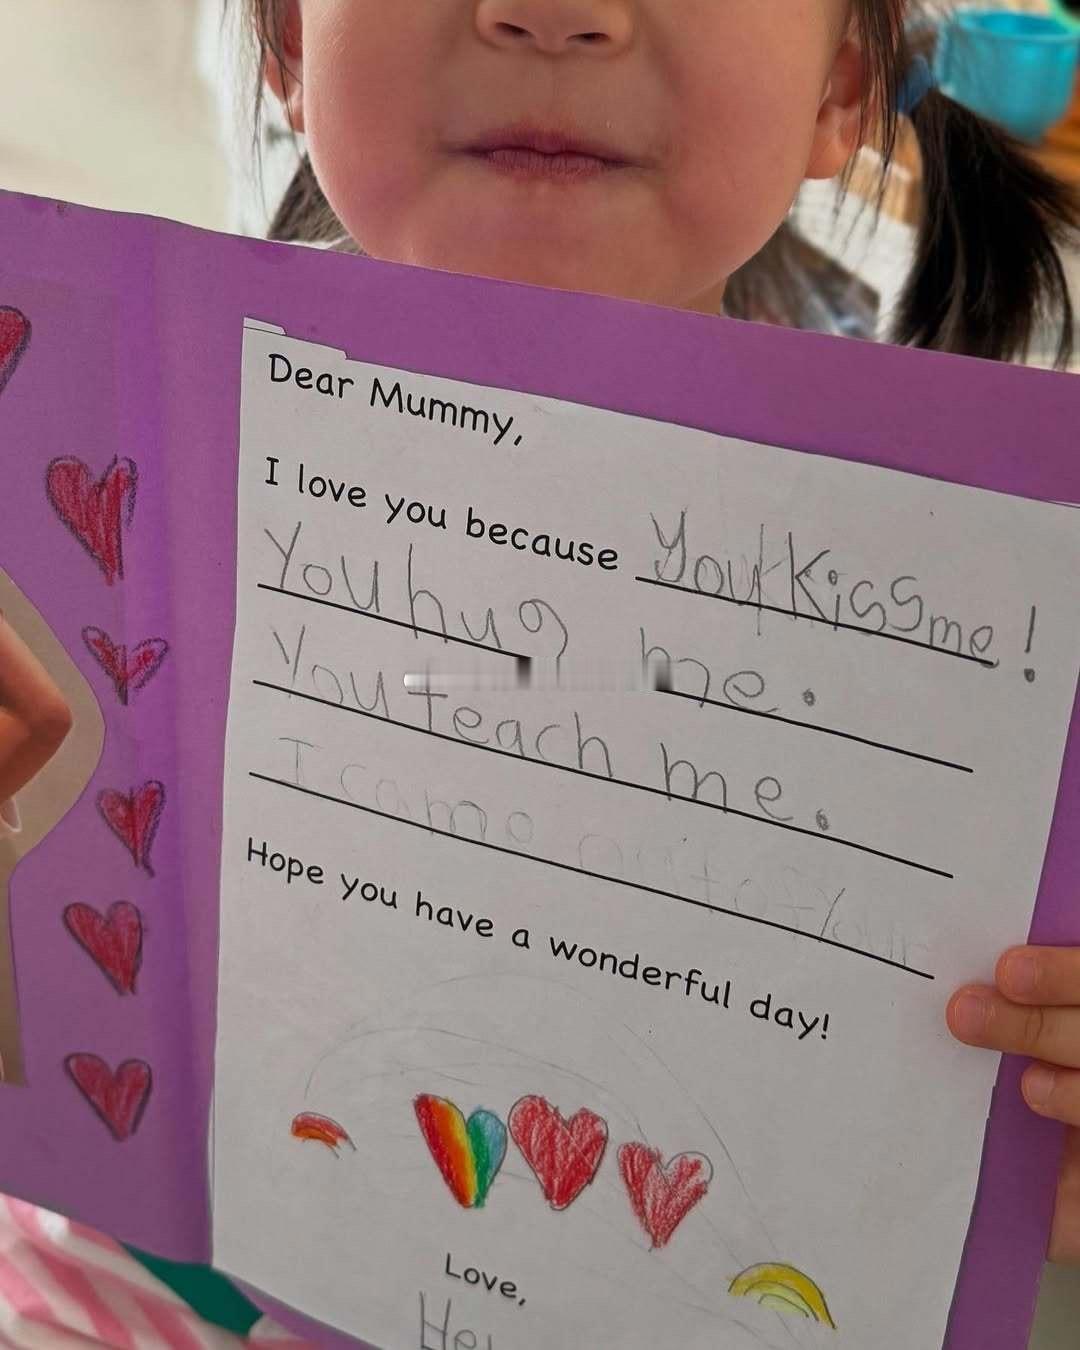 Dear Mummy,
I love you because You Kiss me!
You hug me.
You teach me.
I came out of your
Hope you have a wonderful day!
Love,